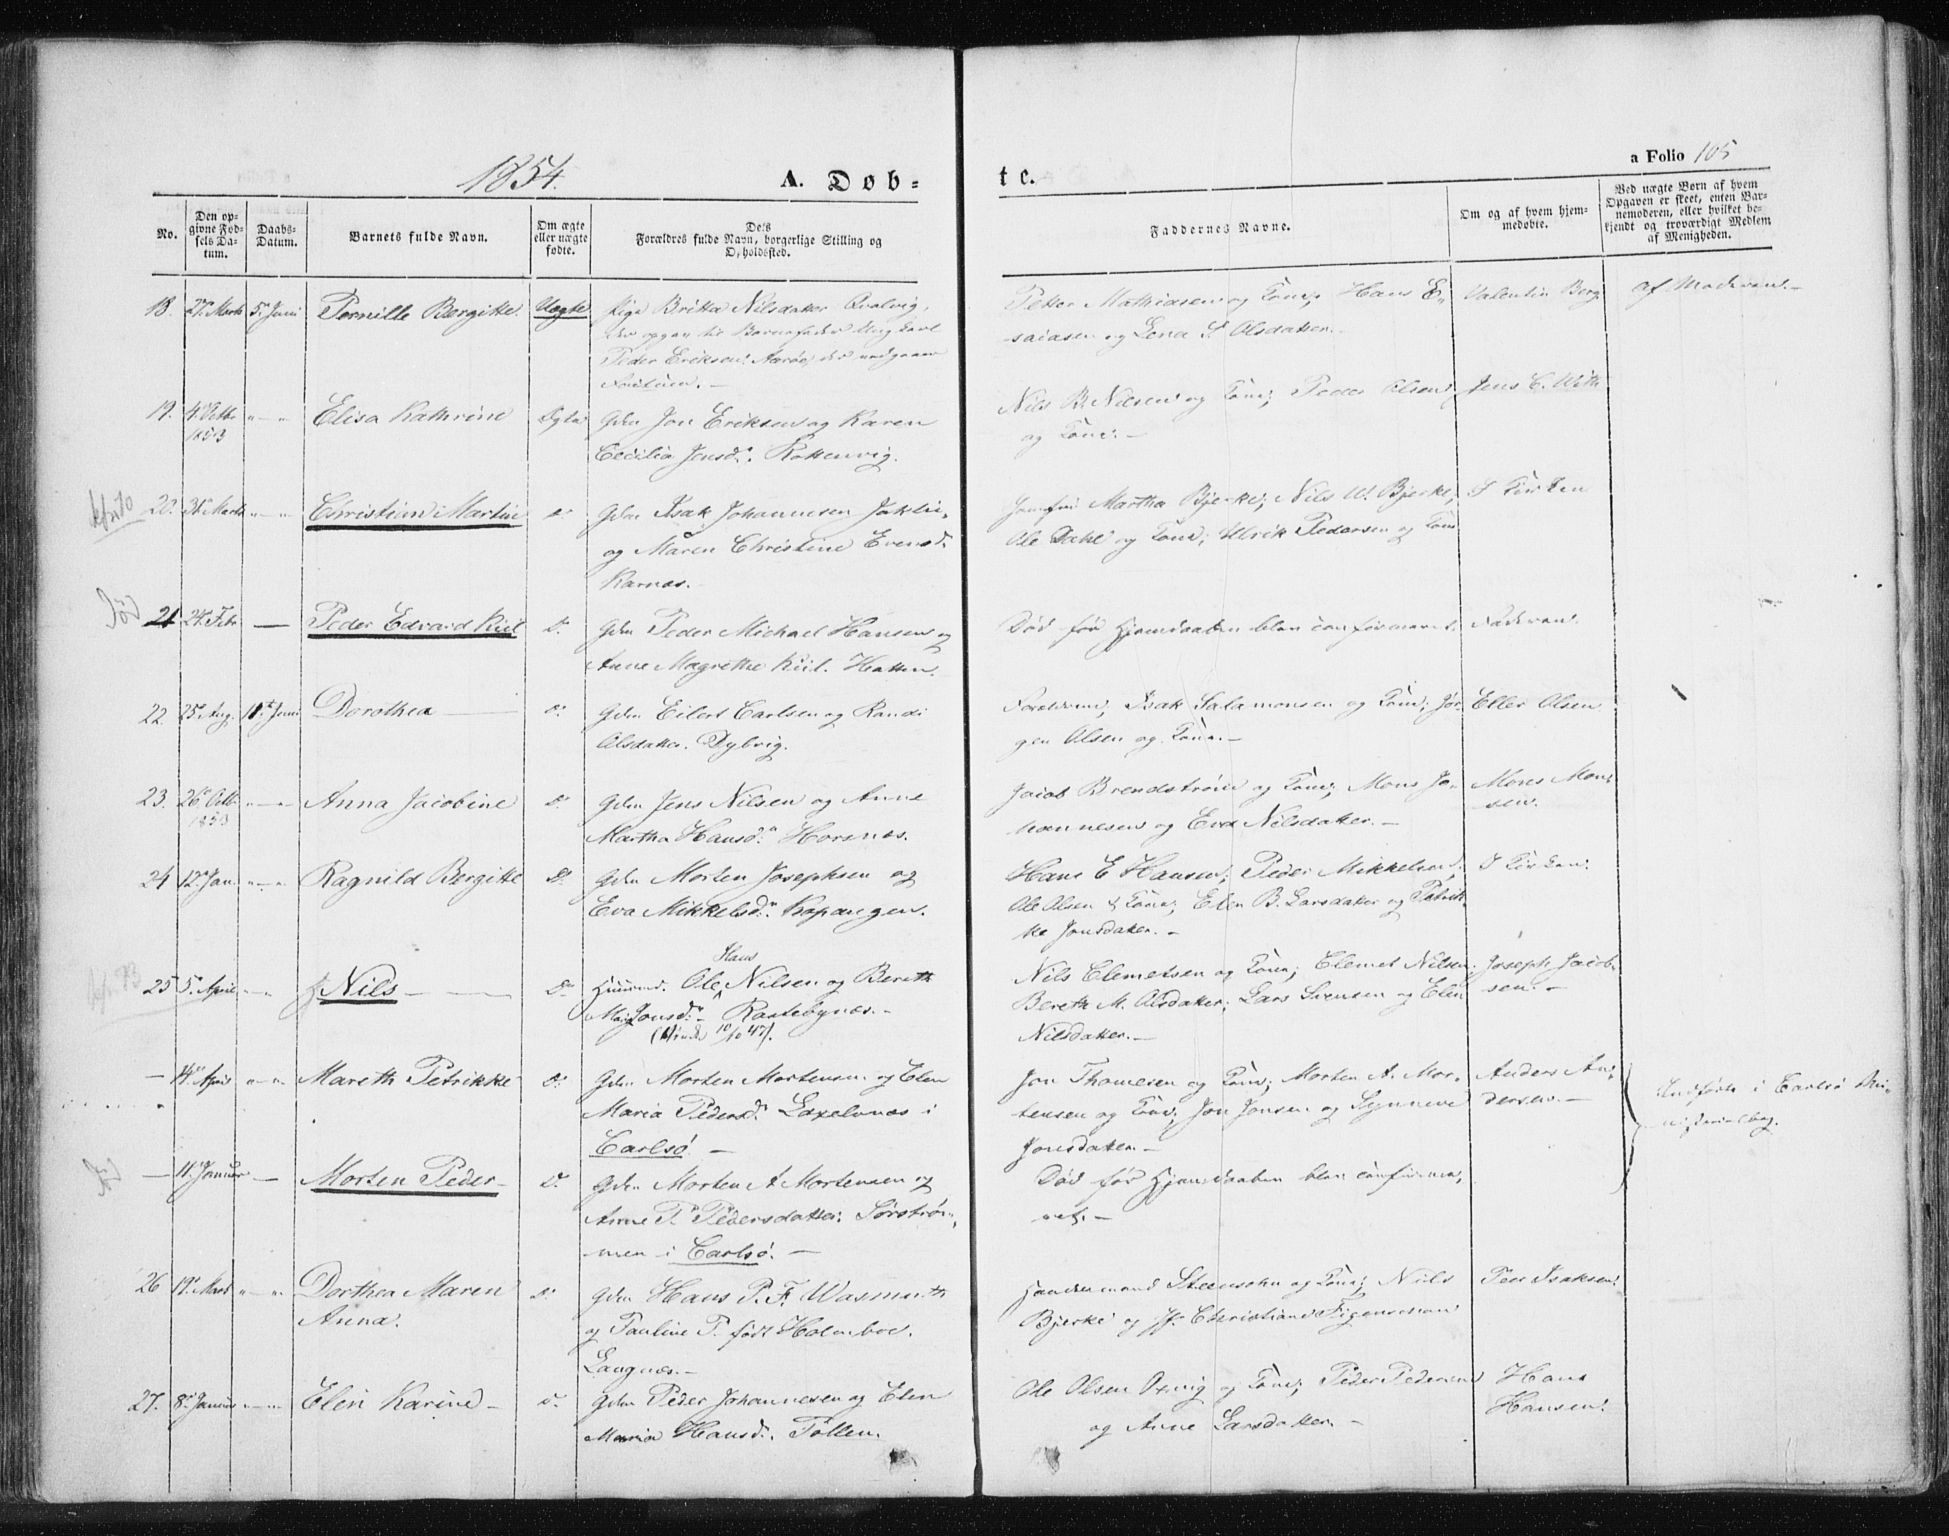 1854.
A. Døb-
te.
a Folio 105
No.
Den op-
givne Fød-
sels Da-
tum.
Daabs-
Datum.
Barnets fulde Navn.
Om ægte
eller uægte
fødte.
Dets
Forældres fulde Navn, borgerlige Stilling og
Opholdssted.
Faddernes Navne.
Om og af hvem hjem-
medøbte.
Ved uægte Børn af hvem
Opgaven er skeet, enten Bar-
nemoderen, eller hvilket be-
kjendt og troværdigt Medlem
af Menigheden.
18. 27. Marts 5. Juni Pernille Bergitte Uægte Pige Britha Nilsdatter Qvalvig,
der opgav til Barnefader Ung Karl
Peder Eriksen
Petter Mathiasen og Kone; Hans E-
saiasen og Lena S. Olsdatter.
Valentin Berg
af Moderen.
19. 4. Octb. 1853 Elisa Kathrine Ægte Gdm Jon Eriksen og Karen
Cecilia Jensd. Rottenvig.
Nils B. Nilsen og Kone; Peder Olsen
og Kone.
Jens C. Witt
20. 31. Marts Christian Martin Do Gdm Isak Johannesen
og Maren Christine Evensd.
Karnes.
Jomfru Martha Bjerke; Nils W. Bjerke;
Ole Dahl og Kone; Ulrik Pedersen og Kone
I Kirken
Død
21 24. Febr. Peder Edvard Kiil Do Gdm Peder Michael Hansen og
Anne Magrethe Kiil. Hatten.
Død før Hjemdaaben blev confirmeret.
Faderen.
22. 25. Aug. 11. Juni Dorothea Do Gdm Eilert Carlsen og Randi
Olsdatter. Dybvig.
Forældrene; Isak Salamonsen og Kone; Jør-
gen Olsen og Kone.
Eller Olsen
23. 26. Octb. 1853 Anna Jacobine Do Gdm Jens Nilsen og Anne
Martha Hansd. Horsnæs.
Jacob Brendstrøm og Kone; Mons Jo-
hannesen og Eva Nilsdatter.
Mons Mon-
sen.
24 12. Jan. Ragnild Bergitte Do Gdm Morten Josephsen og
Eva Mikkelsd. Kopangen.
Hans E Hansen; Peder Mikkelsen;
Ole Olsen & Kone; Elen B. Larsdatter og Petrik-
ke Jonsdatter.
I Kirken.
25 5. April Nils Do Ole Hans Nilsen og Bereth
Jonsd. Rastebynæs.
Nils Clemetsen og Kone; Clemet Nilsen
Bereth M. Olsdatter; Lars Svensen og Elen
Nilsdatter.
Joseph Jacob-
sen.
14. April Mareth Petrikke Do Gdm Morten Mortensen og Elen
Maria Pedersd. Laxelvnæs i
Carlsø.
Jon Thomesen og Kone; Morten A. Mor-
tensen og Kone; Jon Jonsen og Synneve
Jonsdatter.
Anders An-
dersen.
Indførte i Carlsø Mi-
nisterialbog.
11. Januar Morten Peder Do Gdm Morten A Mortensen og
Anne P. Pedersdatter. Sørstrøm-
men i Carlsø.
Død før Hjemdaaben blev confirme-
ret.
26 19. Marts Dorthea Maren
Anna. Do Gdm Hans P. F. Wasmuth
og Pauline P. født Holmboe.
Langnæs.
Handelsmand Steensohn og Kone; Nils
Bjerke og Jfr. Christiane Figenschou
Peer Isaksen
27. 8. Januar Elen Karine Do Gdm Peder Johannesen og Elen
Maria Hansd. Tollen.
Ole Olsen og Kone; Peder Pedersen
og Anne Larsdatter.
Hans
Hansen